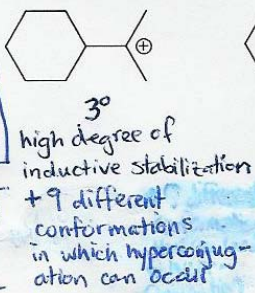 ⊕
3°
high degree of
inductive stabilization
+ 9 different
conformations
in which hyperconjug-
ation can occur